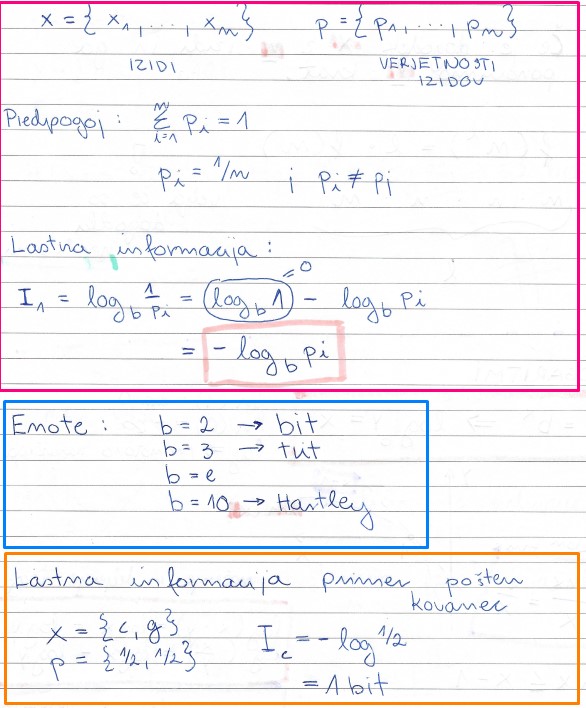 x = {x₁, ..., xₙ}    p = {p₁, ..., pₙ}
IZIDI    VERJETNOSTI
IZIDOV
Predpogoj : ∑ᵢ₌₁ⁿ pᵢ = 1
pᵢ = 1/n    ; pᵢ ≠ pⱼ
Lastna informacija :
= 0
I₁ = log_b 1/pᵢ = log_b 1 - log_b pᵢ
= - log_b pᵢ
Enote : b = 2 → bit
b = 3 → tut
b = e
b = 10 → Hartley
Lastna informacija primer pošten
kovanec
x = {c, g}    I_c = - log 1/2
p = {1/2, 1/2}
= 1 bit